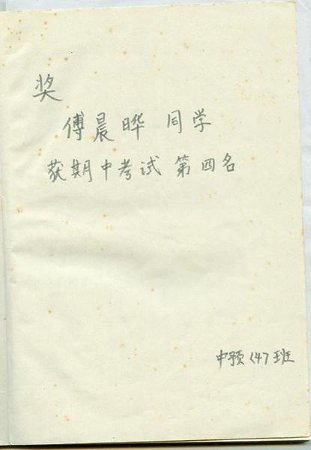 奖
傅晨晔 同学
获期中考试 第四名
中预(4)班